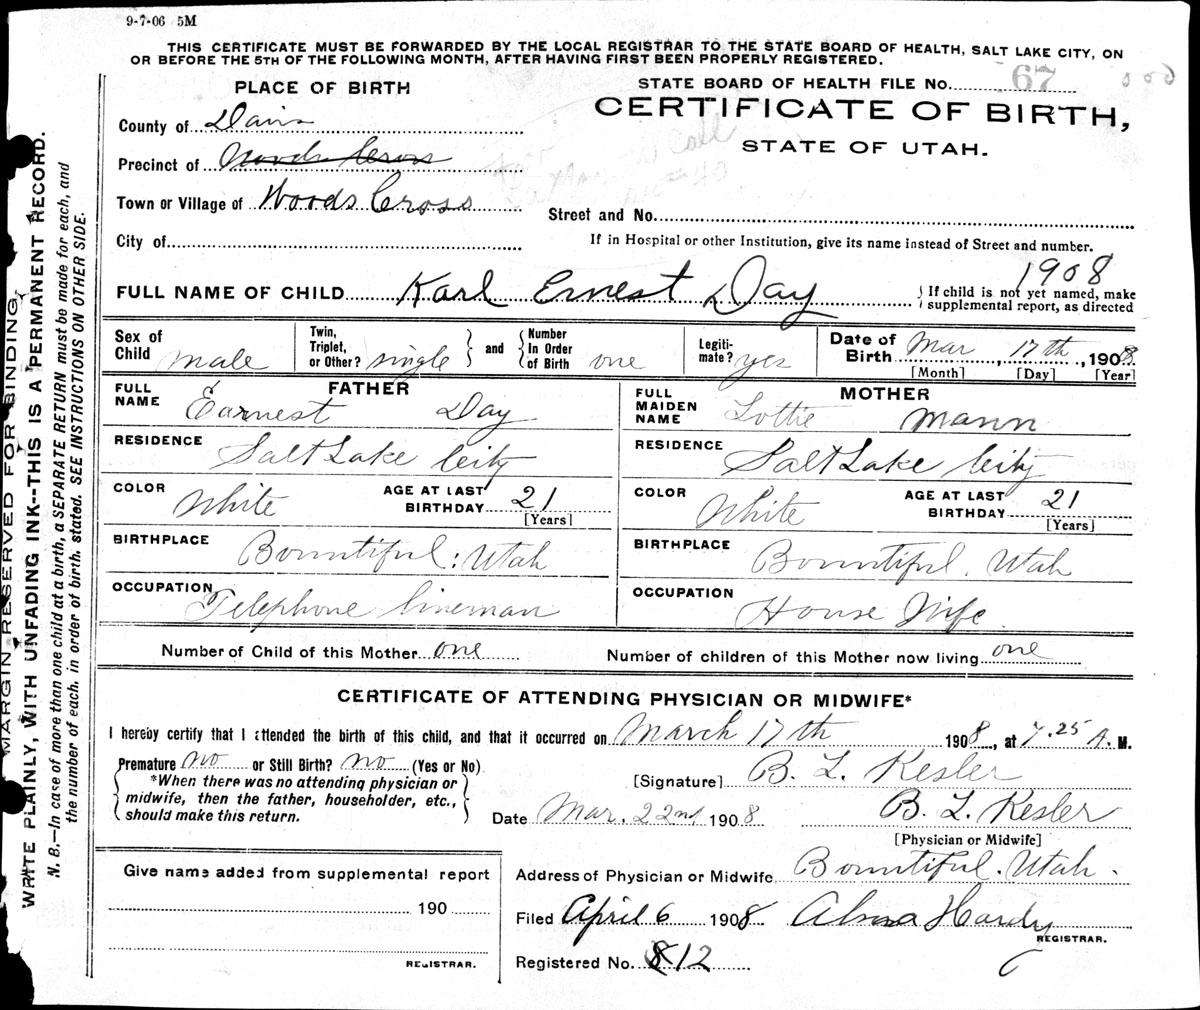 9-7-06 5M
THIS CERTIFICATE MUST BE FORWARDED BY THE LOCAL REGISTRAR TO THE STATE BOARD OF HEALTH, SALT LAKE CITY, ON
OR BEFORE THE 5TH OF THE FOLLOWING MONTH, AFTER HAVING FIRST BEEN PROPERLY REGISTERED.
STATE BOARD OF HEALTH FILE No. 67
PLACE OF BIRTH
CERTIFICATE OF BIRTH,
STATE OF UTAH.
County of Davis
Precinct of Woods Cross
Town or Village of Woods Cross
Street and No.
City of
If in Hospital or other Institution, give its name instead of Street and number.
1908
FULL NAME OF CHILD Karl Ernest Day
} If child is not yet named, make
supplemental report, as directed
Sex of Child male
Twin, Triplet, or Other? single } and { Number In Order of Birth one
Legiti-mate? yes
Date of Birth Mar, 17th, 1908
[Month] [Day] [Year]
FATHER
FULL NAME Earnest Day
RESIDENCE Salt Lake City
COLOR White
AGE AT LAST BIRTHDAY 21
[Years]
BIRTHPLACE Bountiful: Utah
OCCUPATION Telephone lineman
MOTHER
FULL MAIDEN NAME Lottie Mann
RESIDENCE Salt Lake City
COLOR White
AGE AT LAST BIRTHDAY 21
[Years]
BIRTHPLACE Bountiful. Utah
OCCUPATION House Wife.
Number of Child of this Mother one
Number of children of this Mother now living one
CERTIFICATE OF ATTENDING PHYSICIAN OR MIDWIFE*
I hereby certify that I attended the birth of this child, and that it occurred on March 17th 1908, at 7.25 A. M.
Premature no or Still Birth? no (Yes or No)
*When there was no attending physician or
midwife, then the father, householder, etc.,
should make this return.
[Signature] B. L. Kesler
Date Mar. 22nd 1908
B. L. Kesler
[Physician or Midwife]
Address of Physician or Midwife Bountiful. Utah.
Give name added from supplemental report
190
REGISTRAR.
Filed April 6 1908 Alma Hardy
REGISTRAR.
Registered No. 812
MARGIN RESERVED FOR BINDING
WRITE PLAINLY, WITH UNFADING INK--THIS IS A PERMANENT RECORD.
N. B.—In case of more than one child at a birth, a SEPARATE RETURN must be made for each, and
the number of each, in order of birth, stated. SEE INSTRUCTIONS ON OTHER SIDE.